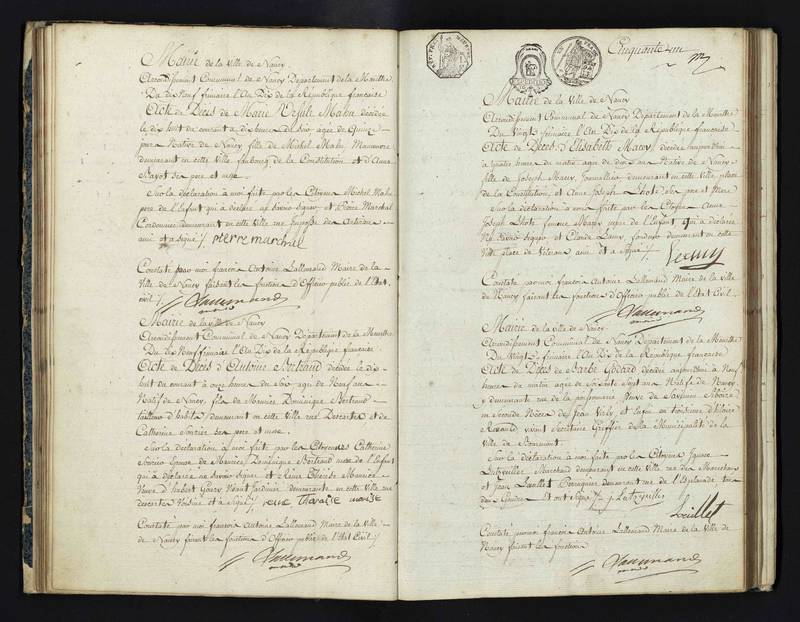 Mairie de la ville de Nancy
Arrondissement Communal de Nancy Département de la Meurthe
Du dix neuf frimaire l'An Dix de la République française
Acte de Décès de Marie Ursule Mahu décédée
le dix huit du courant à dix heures du soir agée de Quinze
jours Native de Nancy fille de Michel Mahu Manœuvre
demeurant en cette ville faubourg de la Constitution et d'Anne
Bayot ses pere et mere
Sur la déclaration à moi faite par le Citoyen Michel Mahu
pere de l'enfant qui a déclaré ne savoir signer et Pierre Marchal
Cordonnier demeurant en cette ville rue
ami et a signé /. pierre marchal
Constaté par moi françois Antoine Lallemand Maire de la
Ville de Nancy faisant les fonctions d'Officier public de l'Etat
civil /.
Lallemand
Mairie de la ville de Nancy
Arrondissement Communal de Nancy Département de la Meurthe
Du Dix Neuf frimaire l'An Dix de la République française
Acte de Décès d'Antoine Bertrand décédé le dix
huit du courant à onze heures du soir agé de Neuf ans
Natif de Nancy, fils de Maurice Dominique Bertrand
tailleur d'habits demeurant en cette ville rue Descartes et de
Catherine ses pere et mere.
Sur la déclaration à moi faite par les Citoyennes Catherine
Epouse de Maurice Dominique Bertrand mere de l'enfant
qui a déclaré ne savoir signer et Reine Thérèse
Veuve d'Hubert Jardinier demeurante en cette ville rue
descartes Voisine et a signé /. reine
Constaté par moi françois Antoine Lallemand Maire de la Ville
de Nancy faisant les fonctions d'Officier public de l'Etat Civil /.
Lallemand
Cinquante un
Mairie de la Ville de Nancy
Arrondissement Communal de Nancy Département de la Meurthe
Du Vingt frimaire l'An Dix de la République française
Acte de Décès d'Elisabeth Maery décédée aujourd'hui
à quatre heures du matin agée de dix ans Native de Nancy
fille de Joseph Maery Journallier demeurant en cette ville place
de la Constitution, et Anne Joseph Lhote ses pere et Mere
Sur la déclaration à moi faite par la Citoyenne Anne
Joseph Lhote femme Maery mere de l'Enfant qui a déclaré
Ne savoir signer et Claude demeurant en cette
Ville place de ami et a signé /.
Constaté par moi françois Antoine Lallemand Maire de la Ville
de Nancy faisant les fonctions d'Officier public de l'Etat Civil.
Lallemand
Mairie de la ville de Nancy
Arrondissement Communal de Nancy Département de la Meurthe
Du Vingt frimaire l'An Dix de la République française
Acte de Décès de Barbe Godard décédée aujourd'hui à Neuf
heures du matin agée de soixante Sept ans Native de Nancy
y demeurante rue de la poissonnerie Veuve de
en Seconde Nôces de Jean et en troisieme
Secrétaire Greffier de la Municipalité de la
Ville de
Sur la déclaration à moi faite par les Citoyens
Marchand demeurant en cette Ville rue des Marechaux
et Jean demeurant rue de l'Esplanade tous
deux Gendres Et ont signé /.
Constaté par moi françois Antoine Lallemand Maire de la Ville de
Nancy faisant les fonctions
Lallemand